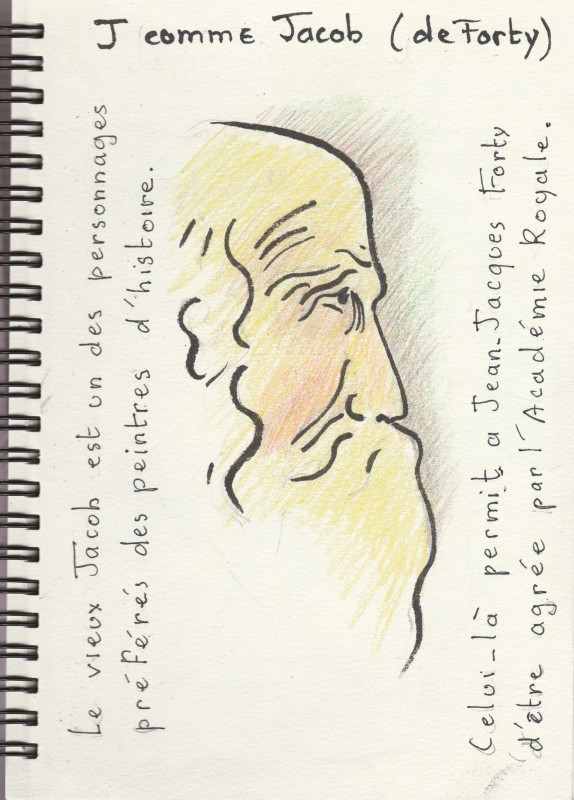 J comme Jacob (de Forty)
Le vieux Jacob est un des personnages
préférés des peintres d'histoire.
Celui-là permit a Jean-Jacques Forty
d'être agrée par l'Académie Royale.